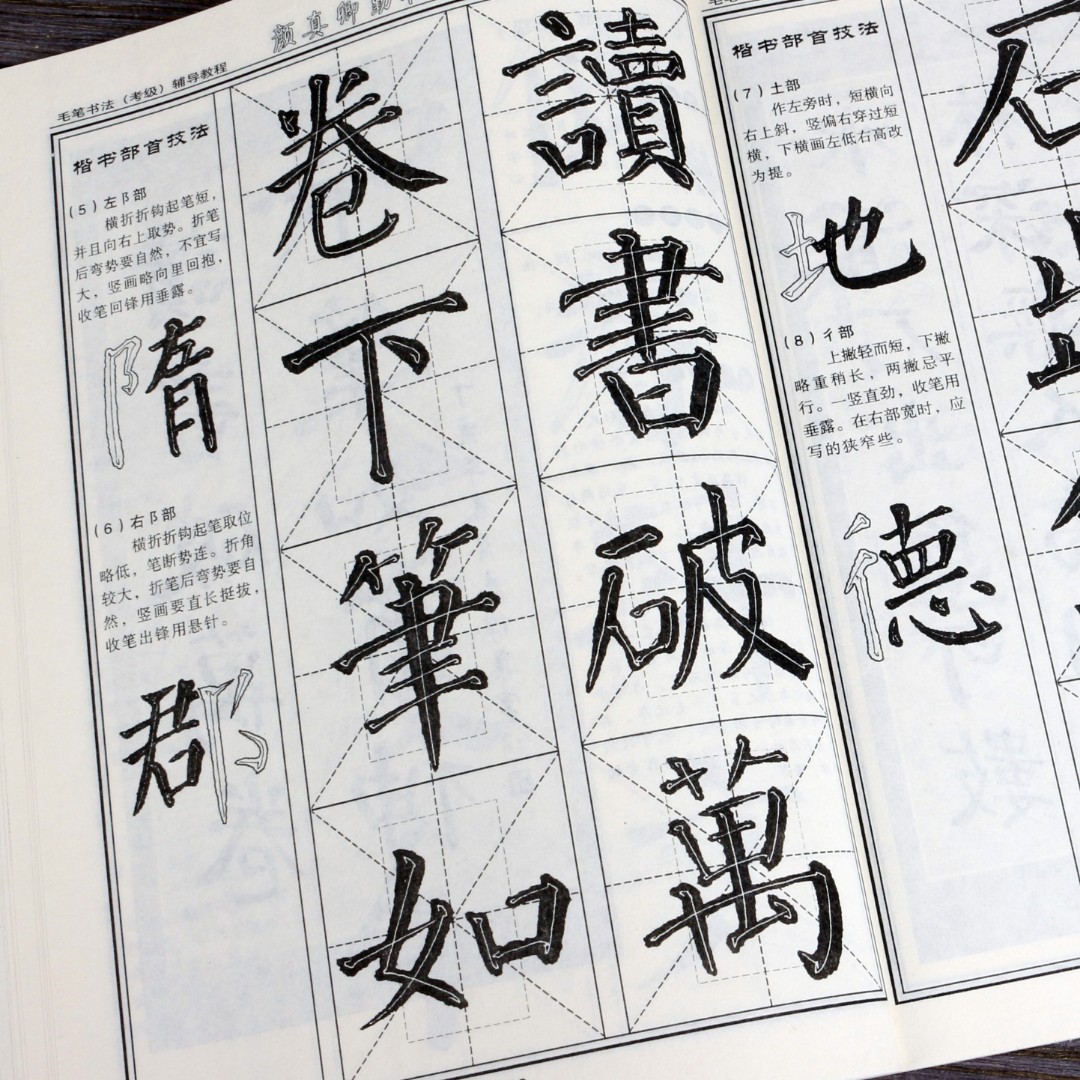 颜真卿勤
毛笔书法（考级）辅导教程
楷书部首技法
（5）左阝部
横折折钩起笔短，
并且向右上取势。折笔
后弯势要自然，不宜写
大，竖画略向里回抱，
收笔回锋用垂露。
隋
（6）右阝部
横折折钩起笔取位
略低，笔断势连。折角
较大，折笔后弯势要自
然，竖画要直长挺拔，
收笔出锋用悬针。
郡
讀書破萬
卷下筆如
楷书部首技法
（7）土部
作左旁时，短横向
右上斜，竖偏右穿过短
横，下横画左低右高改
为提。
地
（8）彳部
上撇轻而短，下撇
略重稍长，两撇忌平
行。一竖直劲，收笔用
垂露。在右部宽时，应
写的狭窄些。
德